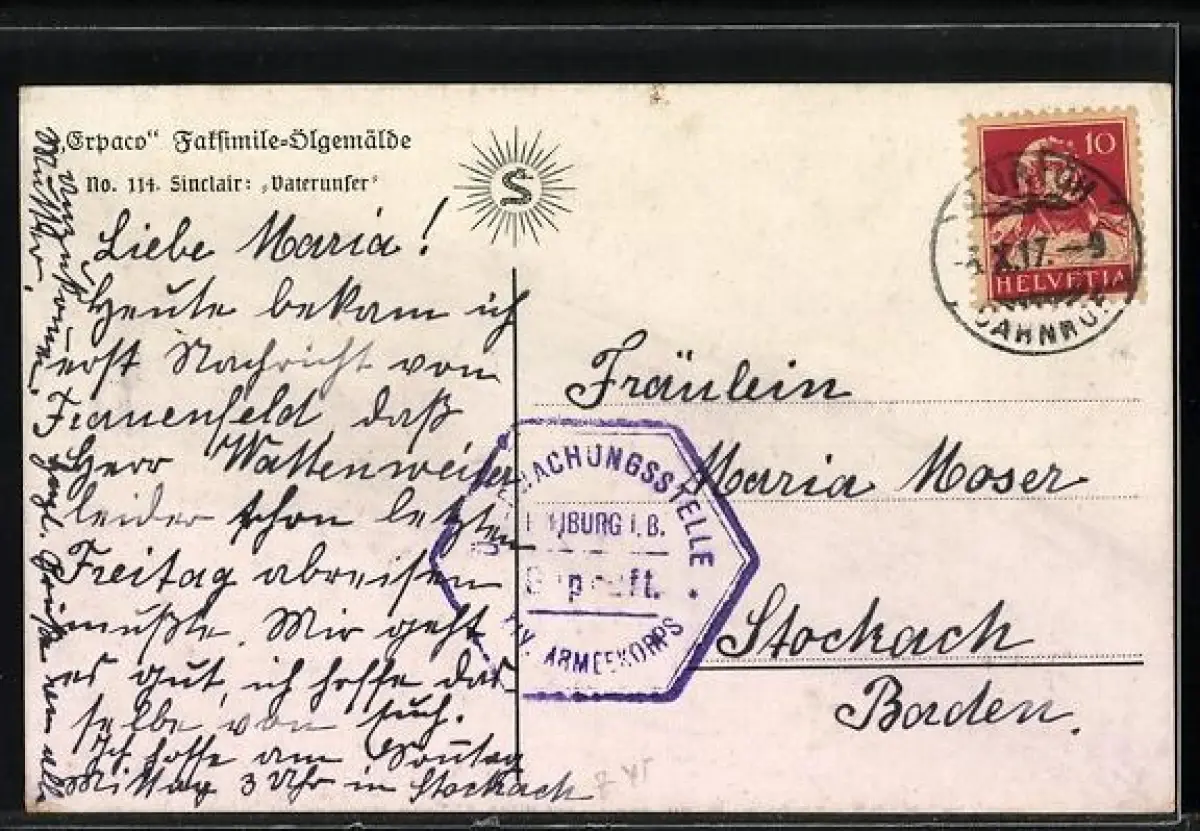 „Erpaco“ Faksimile-Ölgemälde
No. 114. Sinclair: „Vaterunser“
Liebe Maria!
Heute bekam ich
erst Nachricht von
Frauenfeld, daß
Herr Wattenweiler
leider schon letzten
Freitag abreisen
mußte. Mir geht
es gut, ich hoffe das-
selbe von Euch.
Ich hoffe am Sonntag
Mittag 3 Uhr in Stockach
Herzl. Grüße an alle
S
10
HELVETIA
X.17.–9
BAHNHOF
Fräulein
Maria Moser
Stockach
Baden.
ÜBERWACHUNGSSTELLE
I.B.
Geprüft.
XIV. ARMEEKORPS